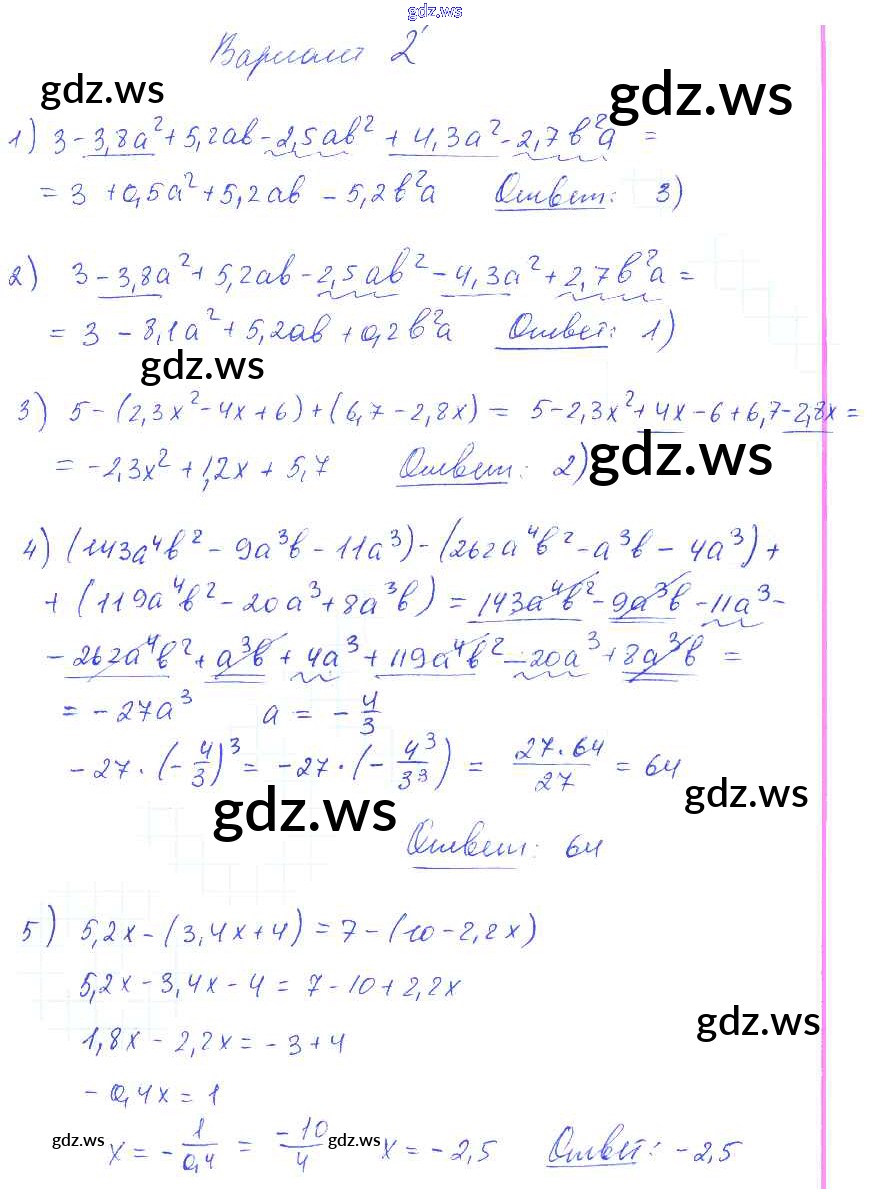 gdz.ws
Вариант 2
gdz.ws gdz.ws
1) 3 - 3,8a² + 5,2ab - 2,5ab² + 4,3a² - 2,7b²a =
= 3 + 0,5a² + 5,2ab - 5,2b²a Ответ: 3)
2) 3 - 3,8a² + 5,2ab - 2,5ab² - 4,3a² + 2,7b²a =
= 3 - 8,1a² + 5,2ab + 0,2b²a Ответ: 1)
gdz.ws
3) 5 - (2,3x² - 4x + 6) + (6,7 - 2,8x) = 5 - 2,3x² + 4x - 6 + 6,7 - 2,8x =
= -2,3x² + 1,2x + 5,7 Ответ: 2)
gdz.ws
4) (143a⁴b² - 9a³b - 11a³) - (262a⁴b² - a³b - 4a³) +
+ (119a⁴b² - 20a³ + 8a³b) = 143a⁴b² - 9a³b - 11a³ -
- 262a⁴b² + a³b + 4a³ + 119a⁴b² - 20a³ + 8a³b =
= -27a³ a = -4/3
-27 · (-4/3)³ = -27 · (-4³/3³) = 27·64/27 = 64
gdz.ws gdz.ws
Ответ: 64
5) 5,2x - (3,4x + 4) = 7 - (10 - 2,2x)
5,2x - 3,4x - 4 = 7 - 10 + 2,2x
gdz.ws
1,8x - 2,2x = -3 + 4
-0,4x = 1
x = -1/0,4 = -10/4 x = -2,5 Ответ: -2,5
gdz.ws gdz.ws